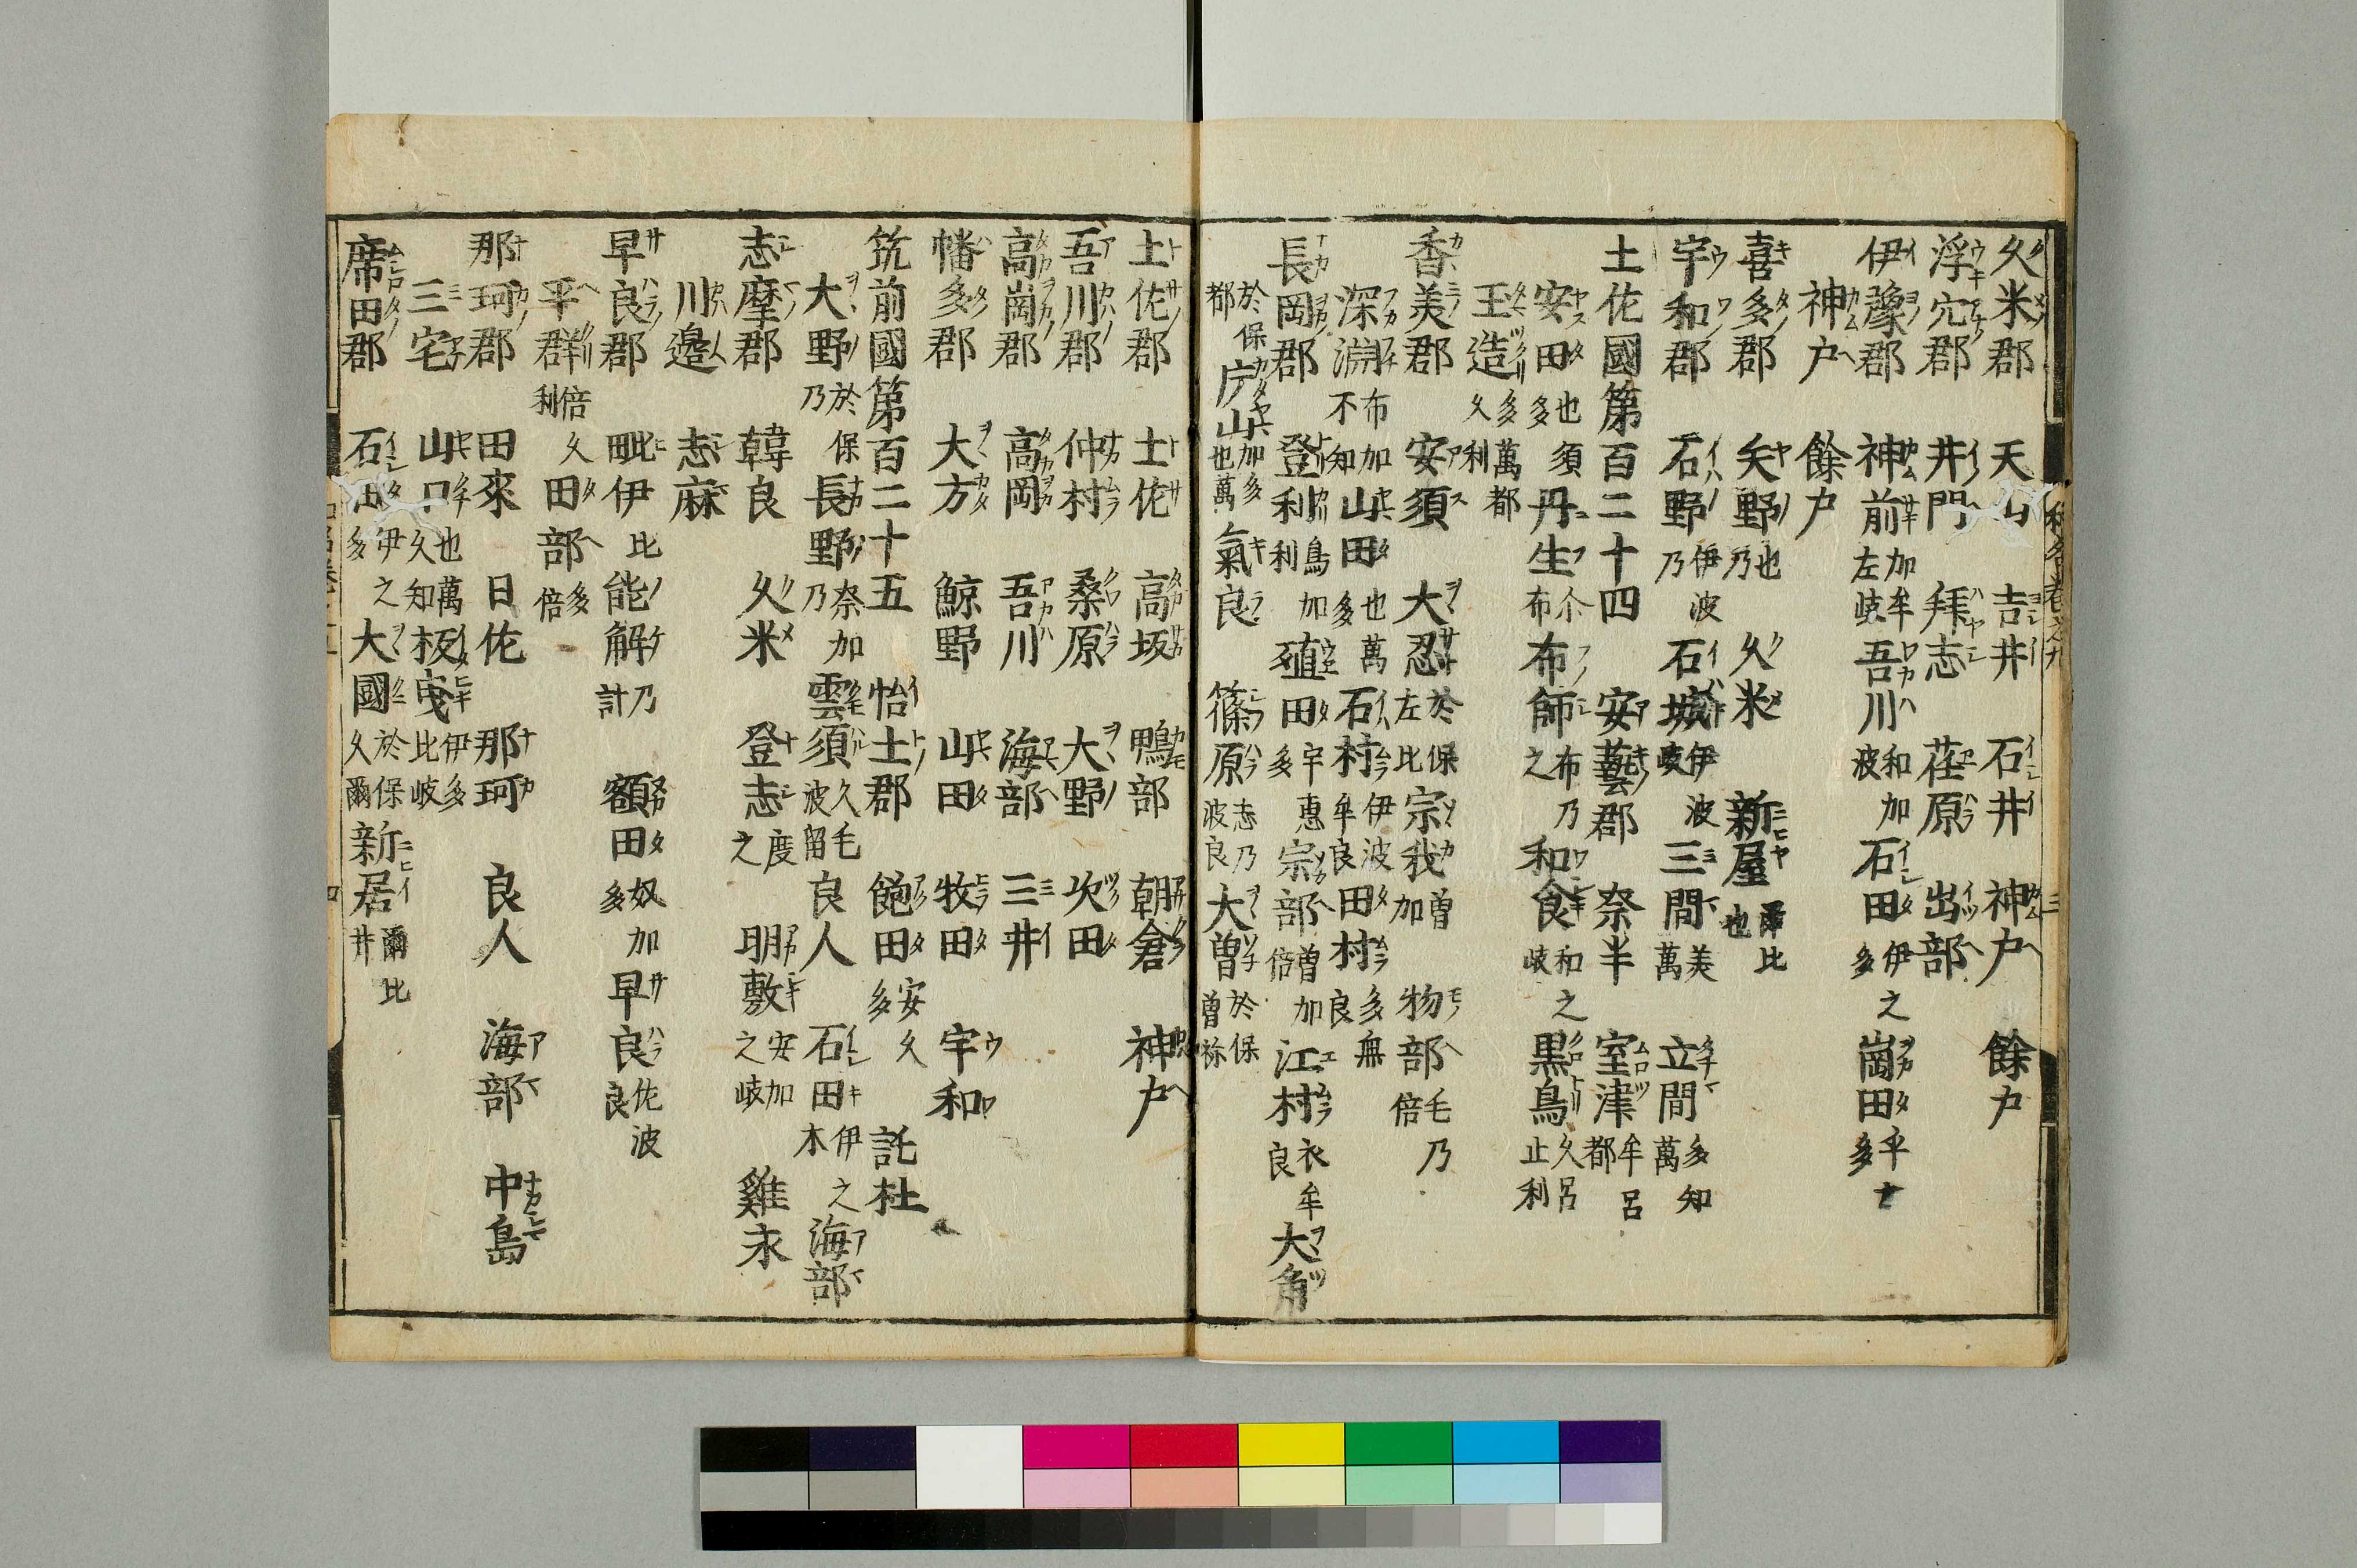 久米郡 天山 吉井 石井 神戸 餘戸
浮穴郡 井門 拜志 荏原 出部
伊豫郡 神前加牟左岐 吾川和加波 石田伊之多 崗田乎士多
神戸 餘戸
喜多郡 矢野也乃 久米 新屋爾比也
宇和郡 石野伊波乃 石城伊波岐 三間美萬 立間多知萬
土佐國第百二十四 安藝郡 奈半 室津牟呂都
安田也須多 丹生介布布 布師布乃之 和食和之岐 黒鳥久呂止利
玉造多萬都久利
香美郡 安須 大忍於保左比 宗我曽加 物部毛乃倍
深淵布加不知 山田也萬多 石村伊波牟良 田村多無良
長岡郡 登利鳥加利 殖田宇惠多 宗部曽加倍 江村衣牟良 大角
於保都 片山加多也萬 氣良 篠原志乃波良 大曽於保曽祢
土佐郡 土佐 高坂 鴨部 朝倉 神戸
吾川郡 仲村 桑原 大野 次田
高崗郡 高岡 吾川 海部 三井
幡多郡 大方 鯨野 山田 牧田 宇和
筑前國第百二十五 怡土郡 飽田安久多 託杜
大野於保乃 長野奈加乃 雲須久毛波留 良人 石田伊之木 海部
志摩郡 韓良 久米 登志度之 明敷安加之岐 雞永
川邉 志麻
早良郡 毗伊比 能解乃計 額田奴加多 早良佐波良
平群倍久利 田部多倍
那珂郡 田來 日佐 那珂 良人 海部 中島
三宅 山口也萬久知 板曳伊多比岐
席田郡 石田伊之多 大國於保久爾 新居爾比井